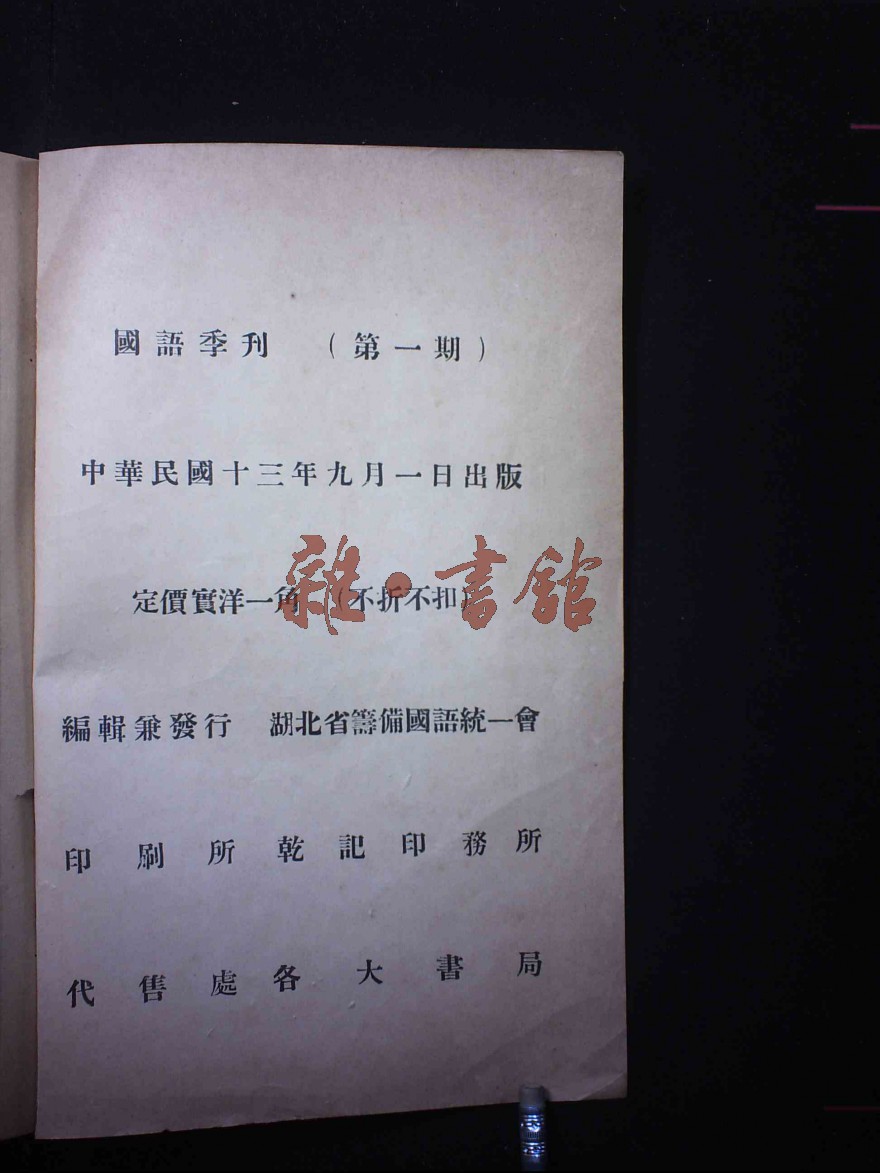 國語季刊 (第一期)
中華民國十三年九月一日出版
定價實洋一角 (不折不扣)
雜·書館
編輯兼發行 湖北省籌備國語統一會
印刷所乾記印務所
代售處各大書局